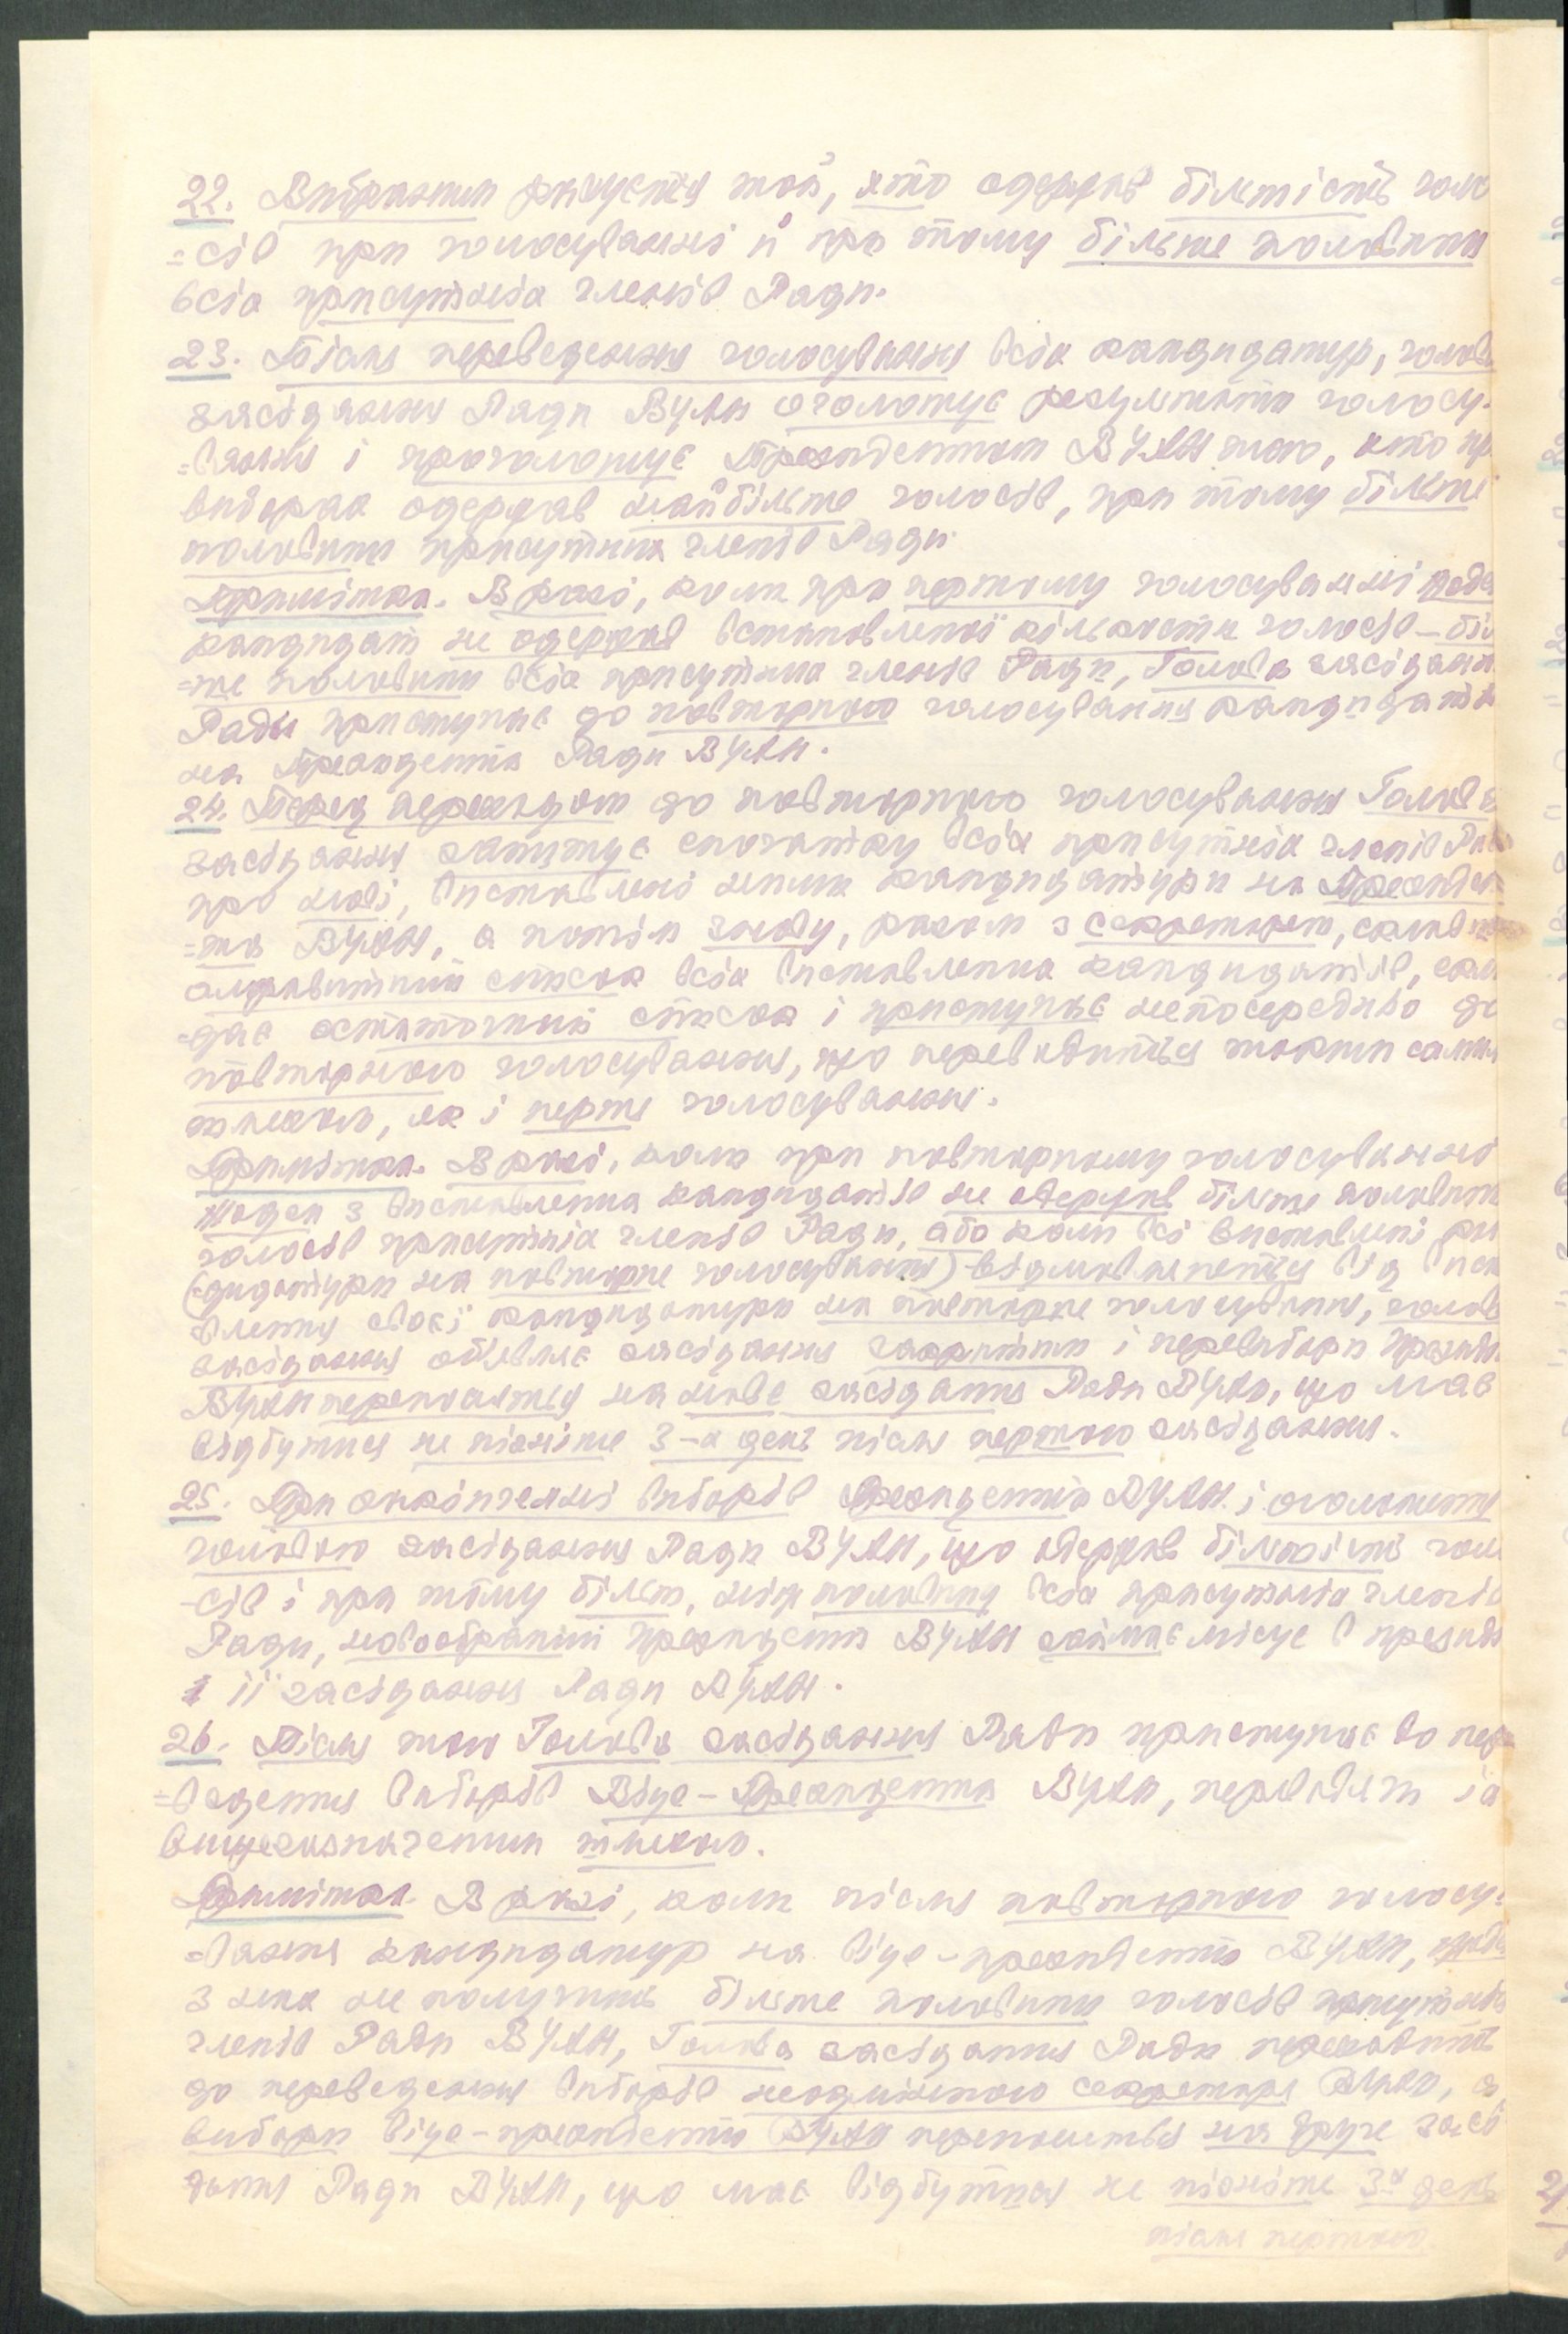 22. Вибраним рахується той, хто одержав більшість голо
=сів при голосуванні й при тому більше половини
всіх присутніх членів Ради.
23. Після переведення голосування всіх кандидатур, голова
засідання Ради ВУАН оголошує результати голосу-
=вання і проголошує Президентом ВУАН того, хто при
виборах одержав найбільше голосів, при тому більше
половини присутних членів Ради.
Примітка. В разі, коли при першому голосуванні
кандидат не одержав встановленої кількости голосів – біл
=ше половини всіх присутних членів Ради, Голова засідання
Ради приступає до повторного голосування кандидатів
на Президента Ради ВУАН.
24. Перед переходом до повторного голосування Голова
засідання запитує спочатку всіх присутніх членів Ради
про нові, виставлені ними кандидатури на Президен
=та ВУАН, а потім знову, разом з секретарем, складає
алфавитний список всіх виставлених кандидатів, скла
=дає остаточний список і приступає непосередньо до
повторного голосування, що переводиться таким самим
шляхом, як і перше голосування.
Примітка. В разі, коли при повторному голосуванні
жоден з виставлених кандидатів не одержав більше половини
голосів присутніх членів Ради, або коли всі виставлені кан
(дидатури на повторне голосування) відмовляються від виста
влення своєї кандидатури на повторне голосування, голова
засідання об'являє засідання закритим і перевибори Презид
ВУАН переносяться на нове засідання Ради ВУАН, що має
відбутися не пізніше 3-х день після першого засідання.
25. При скінченні виборів Президента ВУАН і оголошенні
головою засідання Ради ВУАН, що одержав більшість голо
-сів і при тому більш, ніж половину всіх присутніх членів
Ради, новообраний президент ВУАН займає місце в презид
її засідання Ради ВУАН.
26. Після того Голова засідання Ради приступає до пере
=ведення виборів Віце-Президента ВУАН, переводячи їх
вищезазначеним шляхом.
Примітка. В разі, коли після повторного голосу-
=вання кандидатур на віце-президента ВУАН,
з них не получить більше половини голосів присутніх
членів Ради ВУАН, Голова засідання Ради переходить
до переведення виборів неодмінного секретаря ВУАН, а
вибори віце-президента ВУАН переносяться на друге засі
дання Ради ВУАН, що має відбутися не пізніше 3х день
після першого.